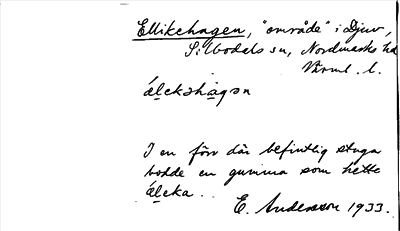 Ellikehagen, "område" i Djuv,
Silbodals sn, Nordmarks hd
Värml. l.
álekəhagən
I en förr där befintlig stuga
bodde en gumma som hette
áleka..
E. Andersson 1933.